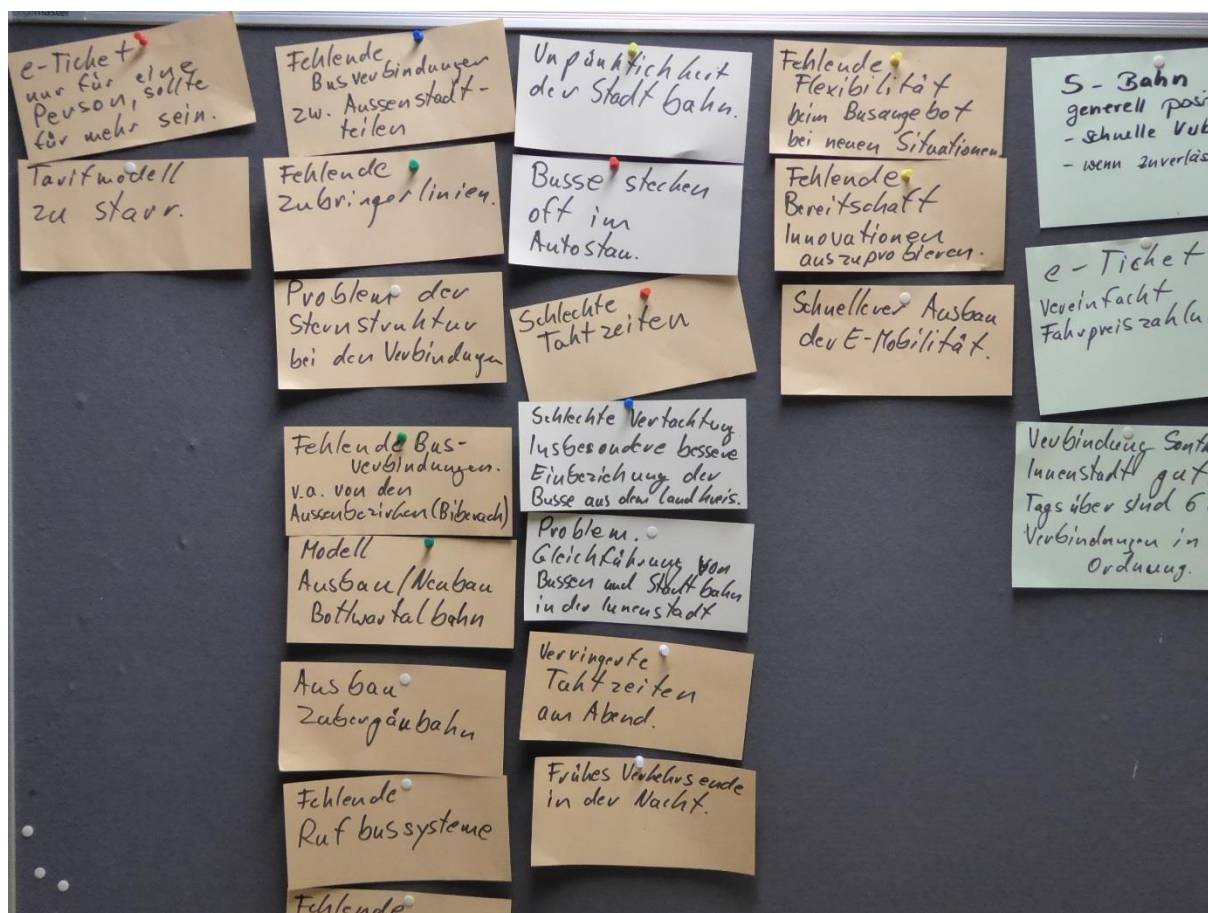 e-Ticket
nur für eine
Person, sollte
für mehr sein.
Tarifmodell
zu starr.
Fehlende
Busverbindungen
zw. Aussenstadt-
teilen
Fehlende
Zubringerlinien.
Problem der
Sternstruktur
bei den Verbindungen
Fehlende Bus-
verbindungen.
v.a. von den
Aussenbezirken (Biberach)
Modell
Ausbau/Neubau
Bottwartalbahn
Ausbau
Zabergäubahn
Fehlende
Rufbussysteme
Fehlende
Unpünktlichkeit
der Stadtbahn.
Busse stecken
oft im
Autostau.
Schlechte
Taktzeiten
Schlechte Vertaktung
Insbesondere bessere
Einbeziehung der
Busse aus dem Landkreis.
Problem.
Gleichführung von
Bussen und Stadtbahn
in der Innenstadt
Verringerte
Taktzeiten
am Abend.
Frühes Verkehrsende
in der Nacht.
Fehlende
Flexibilität
beim Busangebot
bei neuen Situationen.
Fehlende
Bereitschaft
Innovationen
auszuprobieren.
Schnellerer Ausbau
der E-Mobilität.
S-Bahn
generell
- schnelle
- wenn
e-Ticket
vereinfacht
Verbindung
Innenstadt gut
Tagsüber sind 6
Verbindungen in
Ordnung.